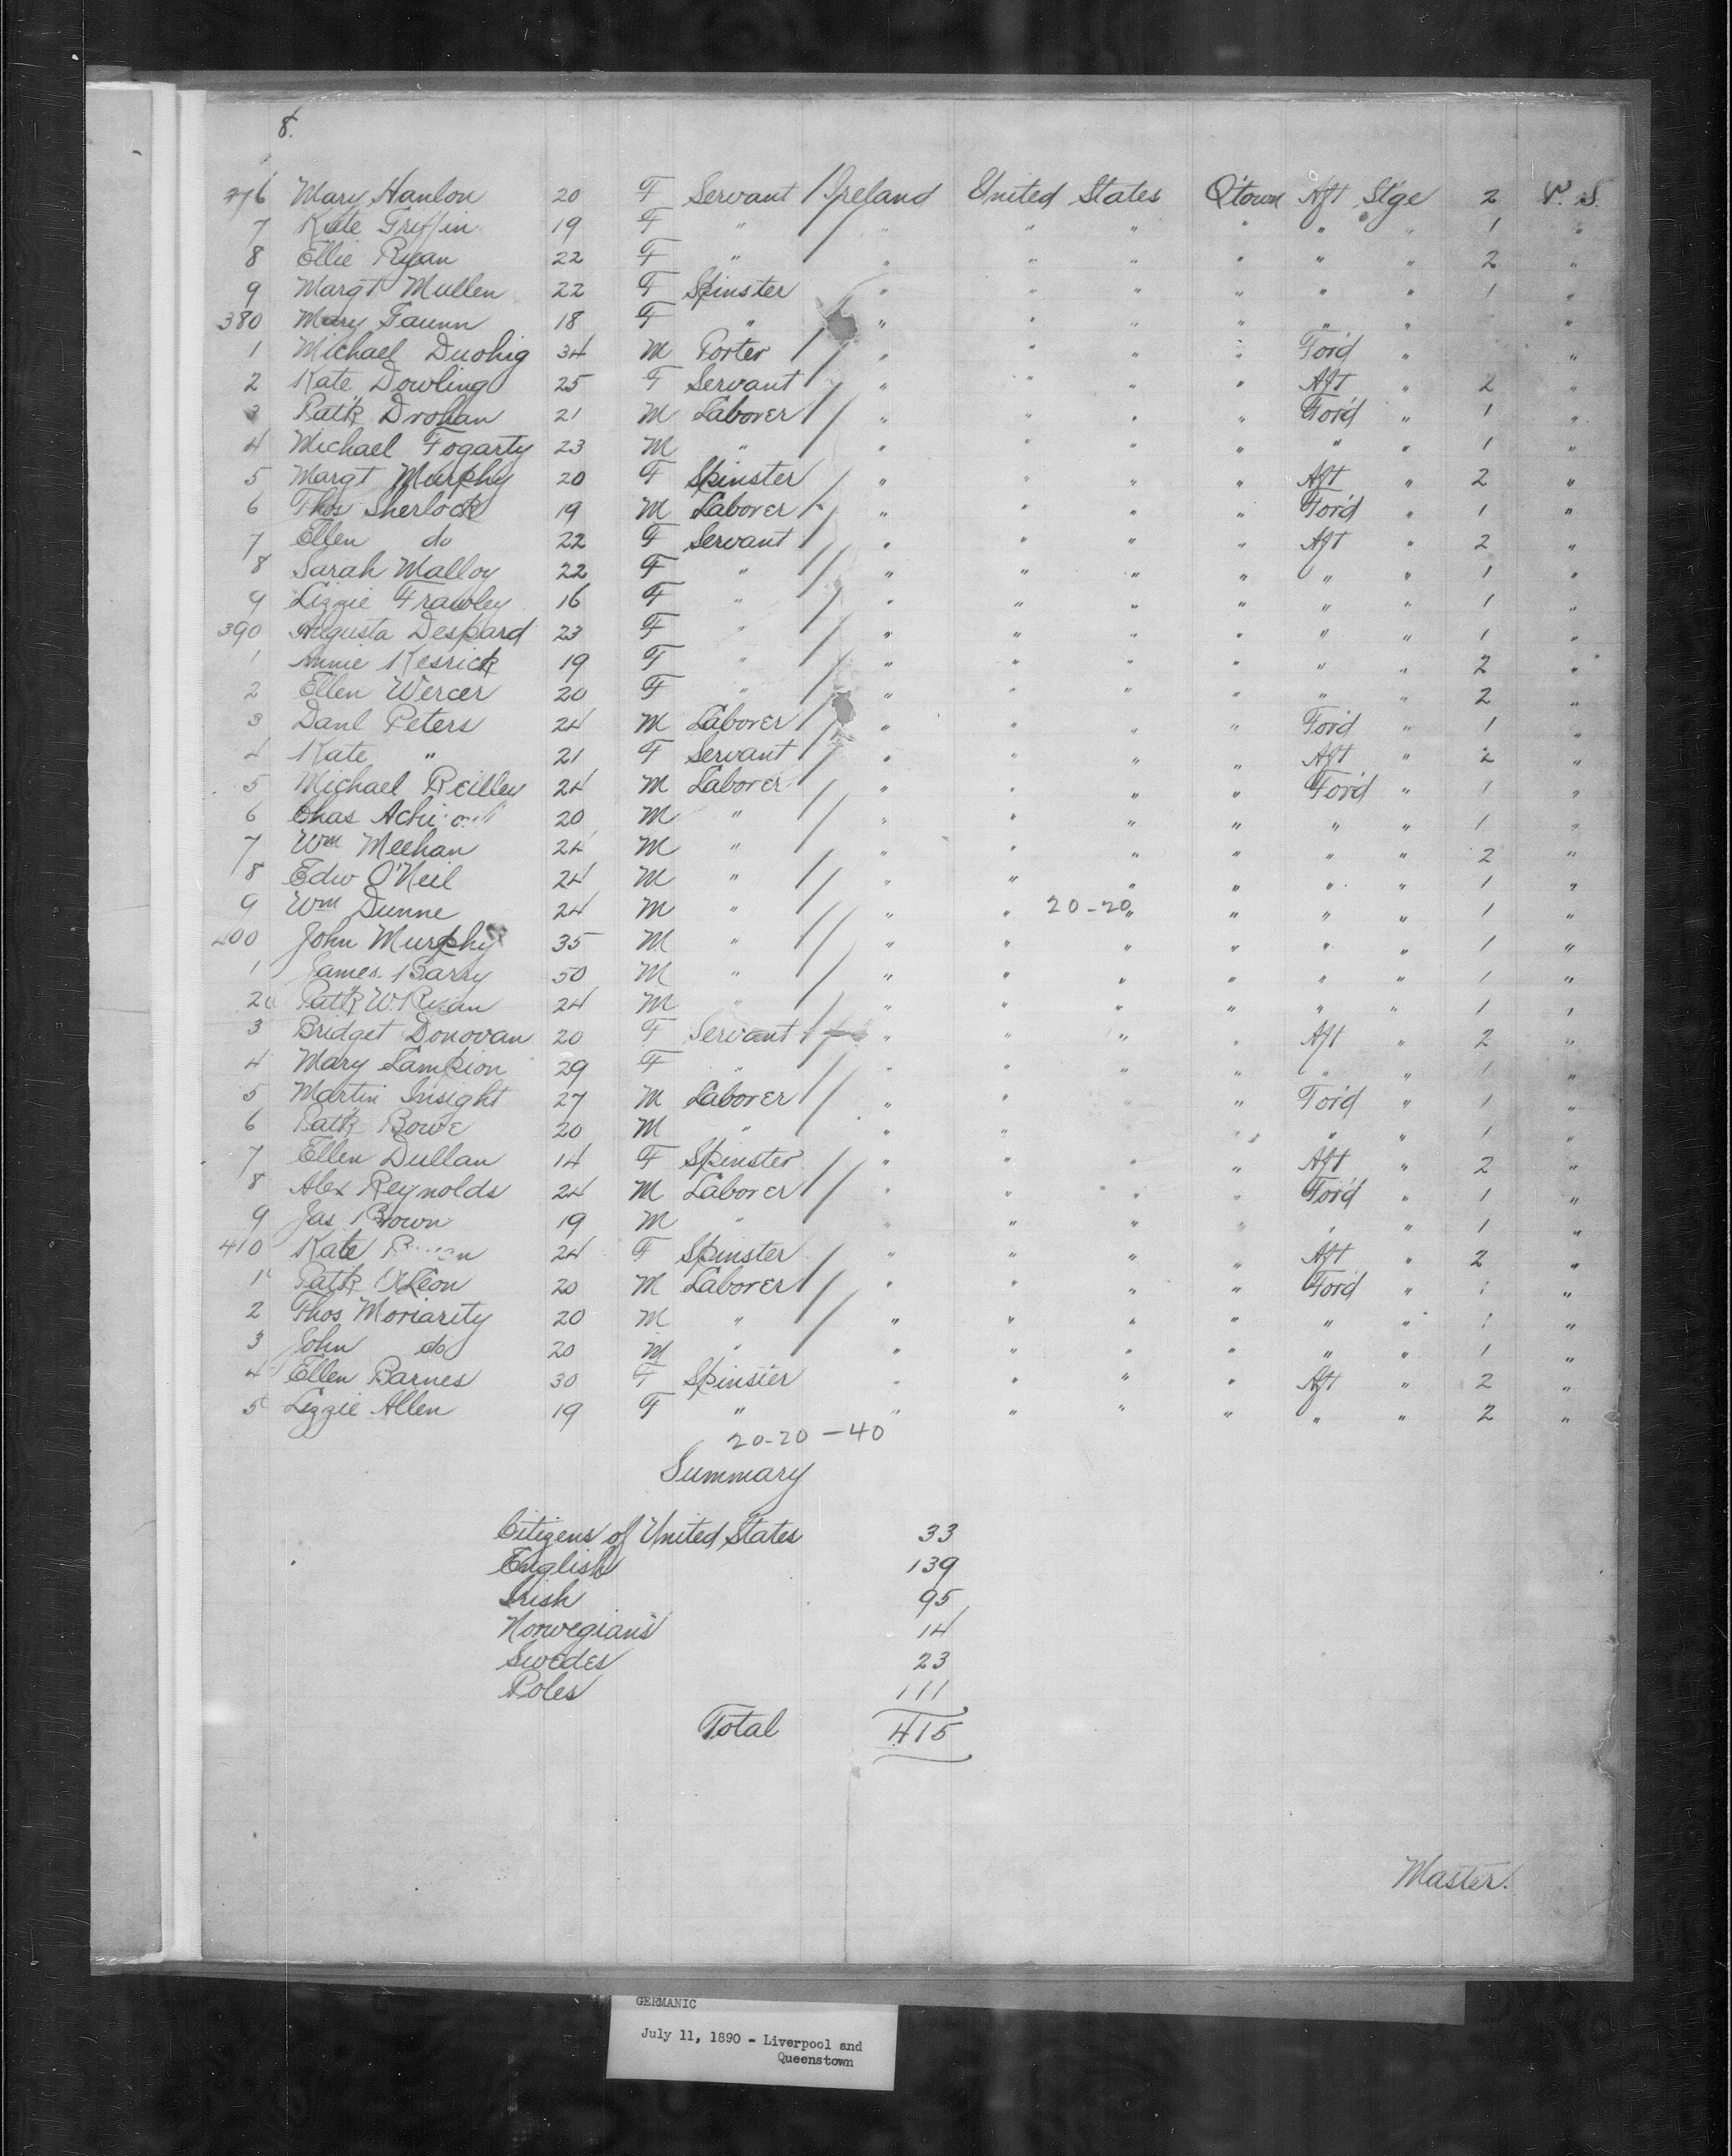 8.
376 Mary Hanlon 20 F Servant Ireland United States Q'town Aft St'ge 2 P. S.
7 Kate Griffin 19 F " " " " " " " 1 "
8 Ellie Ryan 22 F " " " " " " " 2 "
9 Margt Mullen 22 F Spinster " " " " " " 1 "
380 Mary 18 F " " " " " " " "
1 Michael Duohig 34 M Porter " " " " For'd " "
2 Kate Dowling 25 F Servant " " " " Aft " 2 "
3 Patk Drohan 21 M Laborer " " " " For'd " 1 "
4 Michael Fogarty 23 M " " " " " " " 1 "
5 Margt Murphy 20 F Spinster " " " " Aft " 2 "
6 Thos Sherlock 19 M Laborer " " " " For'd " 1 "
7 Ellen do 22 F Servant " " " " Aft " 2 "
8 Sarah Malloy 22 F " " " " " " " 1 "
9 Lizzie Frawley 16 F " " " " " " " 1 "
390 Augusta Despard 23 F " " " " " " " 1 "
1 Annie Kesrick 19 F " " " " " " " 2 "
2 Ellen Wercer 20 F " " " " " " " 2 "
3 Danl Peters 24 M Laborer " " " " For'd " 1 "
4 Kate " 21 F Servant " " " " Aft " 2 "
5 Michael Reilley 24 M Laborer " " " " For'd " 1 "
6 Chas 20 M " " " " " " " 1 "
7 Wm Meehan 24 M " " " " " " " 2 "
8 Edw O'Neil 24 M " " " " " " " 1 "
9 Wm Dunne 24 M " " " 20-20 " " " " 1 "
400 John Murphy 35 M " " " " " " " 1 "
1 James Barry 50 M " " " " " " " 1 "
2 Patk W. Ryan 24 M " " " " " " " 1 "
3 Bridget Donovan 20 F Servant " " " " Aft " 2 "
4 Mary Lampion 29 F " " " " " " " 1 "
5 Martin Insight 27 M Laborer " " " " For'd " 1 "
6 Patk Bowe 20 M " " " " " " " 1 "
7 Ellen Dullan 14 F Spinster " " " " Aft " 2 "
8 Alex Reynolds 24 M Laborer " " " " For'd " 1 "
9 Jas Brown 19 M " " " " " " " 1 "
410 Kate 24 F Spinster " " " " Aft " 2 "
1 Patk 20 M Laborer " " " " For'd " 1 "
2 Thos Moriarity 20 M " " " " " " " 1 "
3 John do 20 M " " " " " " " 1 "
4 Ellen Barnes 30 F Spinster " " " " Aft " 2 "
5 Lizzie Allen 19 F " " " " " " " 2 "
20-20-40
Summary
Citizens of United States 33
English 139
Irish 95
Norwegians 14
Swedes 23
Poles 111
Total 415
Master.
GERMANIC
July 11, 1890 - Liverpool and
Queenstown